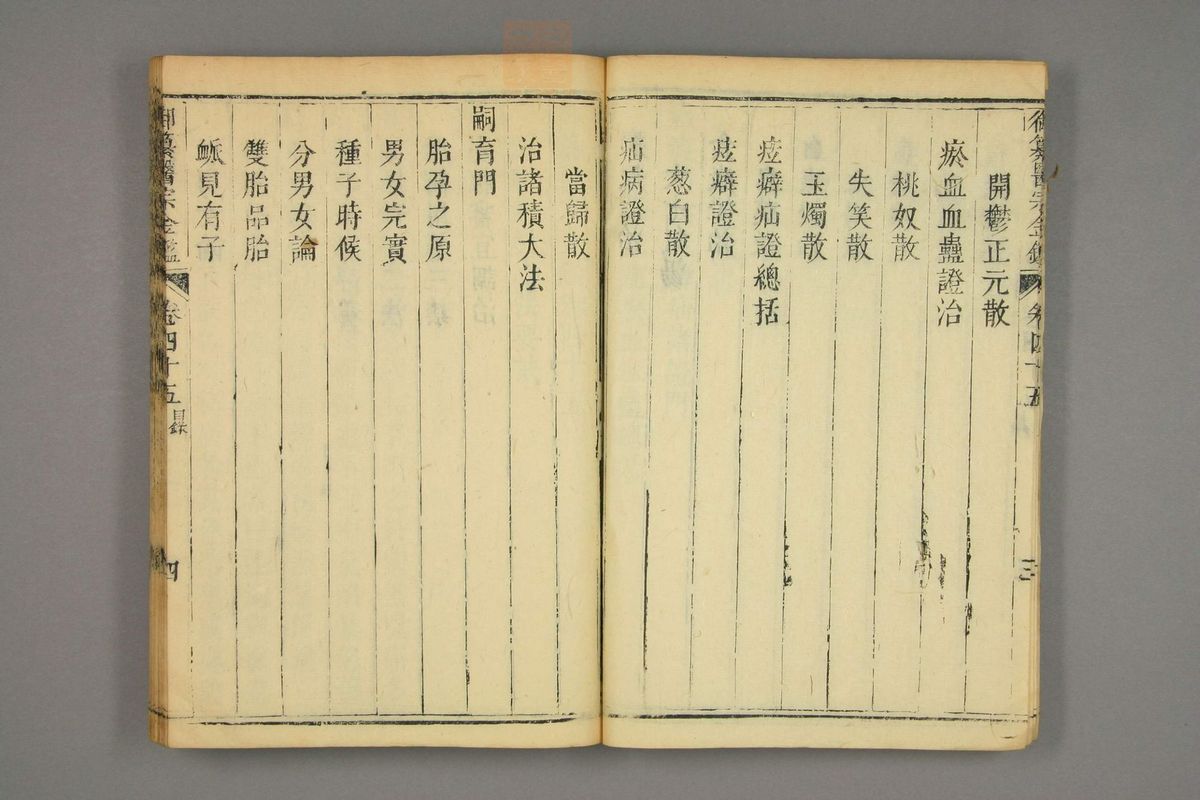 開鬱正元散
瘀血血蠱證治
桃奴散
失笑散
玉燭散
痃癖疝證總括
痃癖證治
葱白散
疝病證治
當歸散
治諸積大法
嗣育門
胎孕之原
男女完實
種子時候
分男女論
雙胎品胎
脈見有子
御纂醫宗金鑑
卷四十五
目録
四